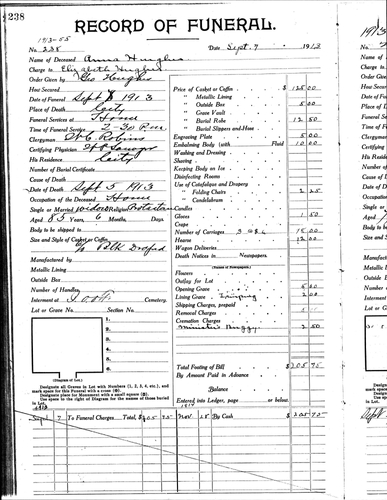 238
RECORD OF FUNERAL.
1913-55
No. 238 Date, Sept. 7 1913
Name of Deceased Anna Hughes
Charge to Elizabeth Hughes
Order Given by Geo Hughes
How Secured
Date of Funeral Sept 8 1913
Place of Death City
Funeral Services at Home
Time of Funeral Service 2-30 P.m.
Clergyman
Certifying Physician
His Residence City
Number of Burial Certificate
Cause of Death
Date of Death Sept 5 1913
Occupation of the Deceased Home
Single or Married widow Religion Protestan
Aged 83 Years, 6 Months, Days.
Body to be shipped to
Size and Style of Casket or Coffin
Draped
Manufactured by
Metallic Lining
Outside Box
Number of Handles
Interment at I.O.O.F. Cemetery.
Lot or Grave No. Section No.
1.
2.
3.
4.
5.
6.
(Diagram of Lot.)
Designate all Graves in Lot with Numbers (1, 2, 3, 4, etc.), and
mark space for this Funeral with a cross
Designate place for Monument with a small square
Use space to the right of Diagram for the names of those buried
in Lot.
Price of Casket or Coffin $ 125 00
" Metallic Lining
" Outside Box 5 00
" Grave Vault
" Burial Robe 12 50
" Burial Slippers and Hose
Engraving Plate 5 00
Embalming Body (with Fluid 10 00
Washing and Dressing
Shaving
Keeping Body on Ice
Disinfecting Rooms
Use of Catafalque and Drapery
" Folding Chairs 2 25
" Candelabrum
Candles
Gloves 1 50
Crape
Number of Carriages, 3 @ $ 15 00
Hearse 12 00
Wagon Deliveries
Death Notices in Newspapers
(Names of Newspapers)
Flowers
Outlay for Lot
Opening Grave 5 00
Lining Grave 2 00
Shipping Charges, prepaid
Removal Charges 5
Cremation Charges
Minister's Buggy 2 50
Total Footing of Bill $ 205 75
By Amount Paid in Advance
Balance
Entered into Ledger, page or below.
1913 1914
Sept 7 To Funeral Charges Total, $ 205 75 Nov 28 By Cash $ 205 75